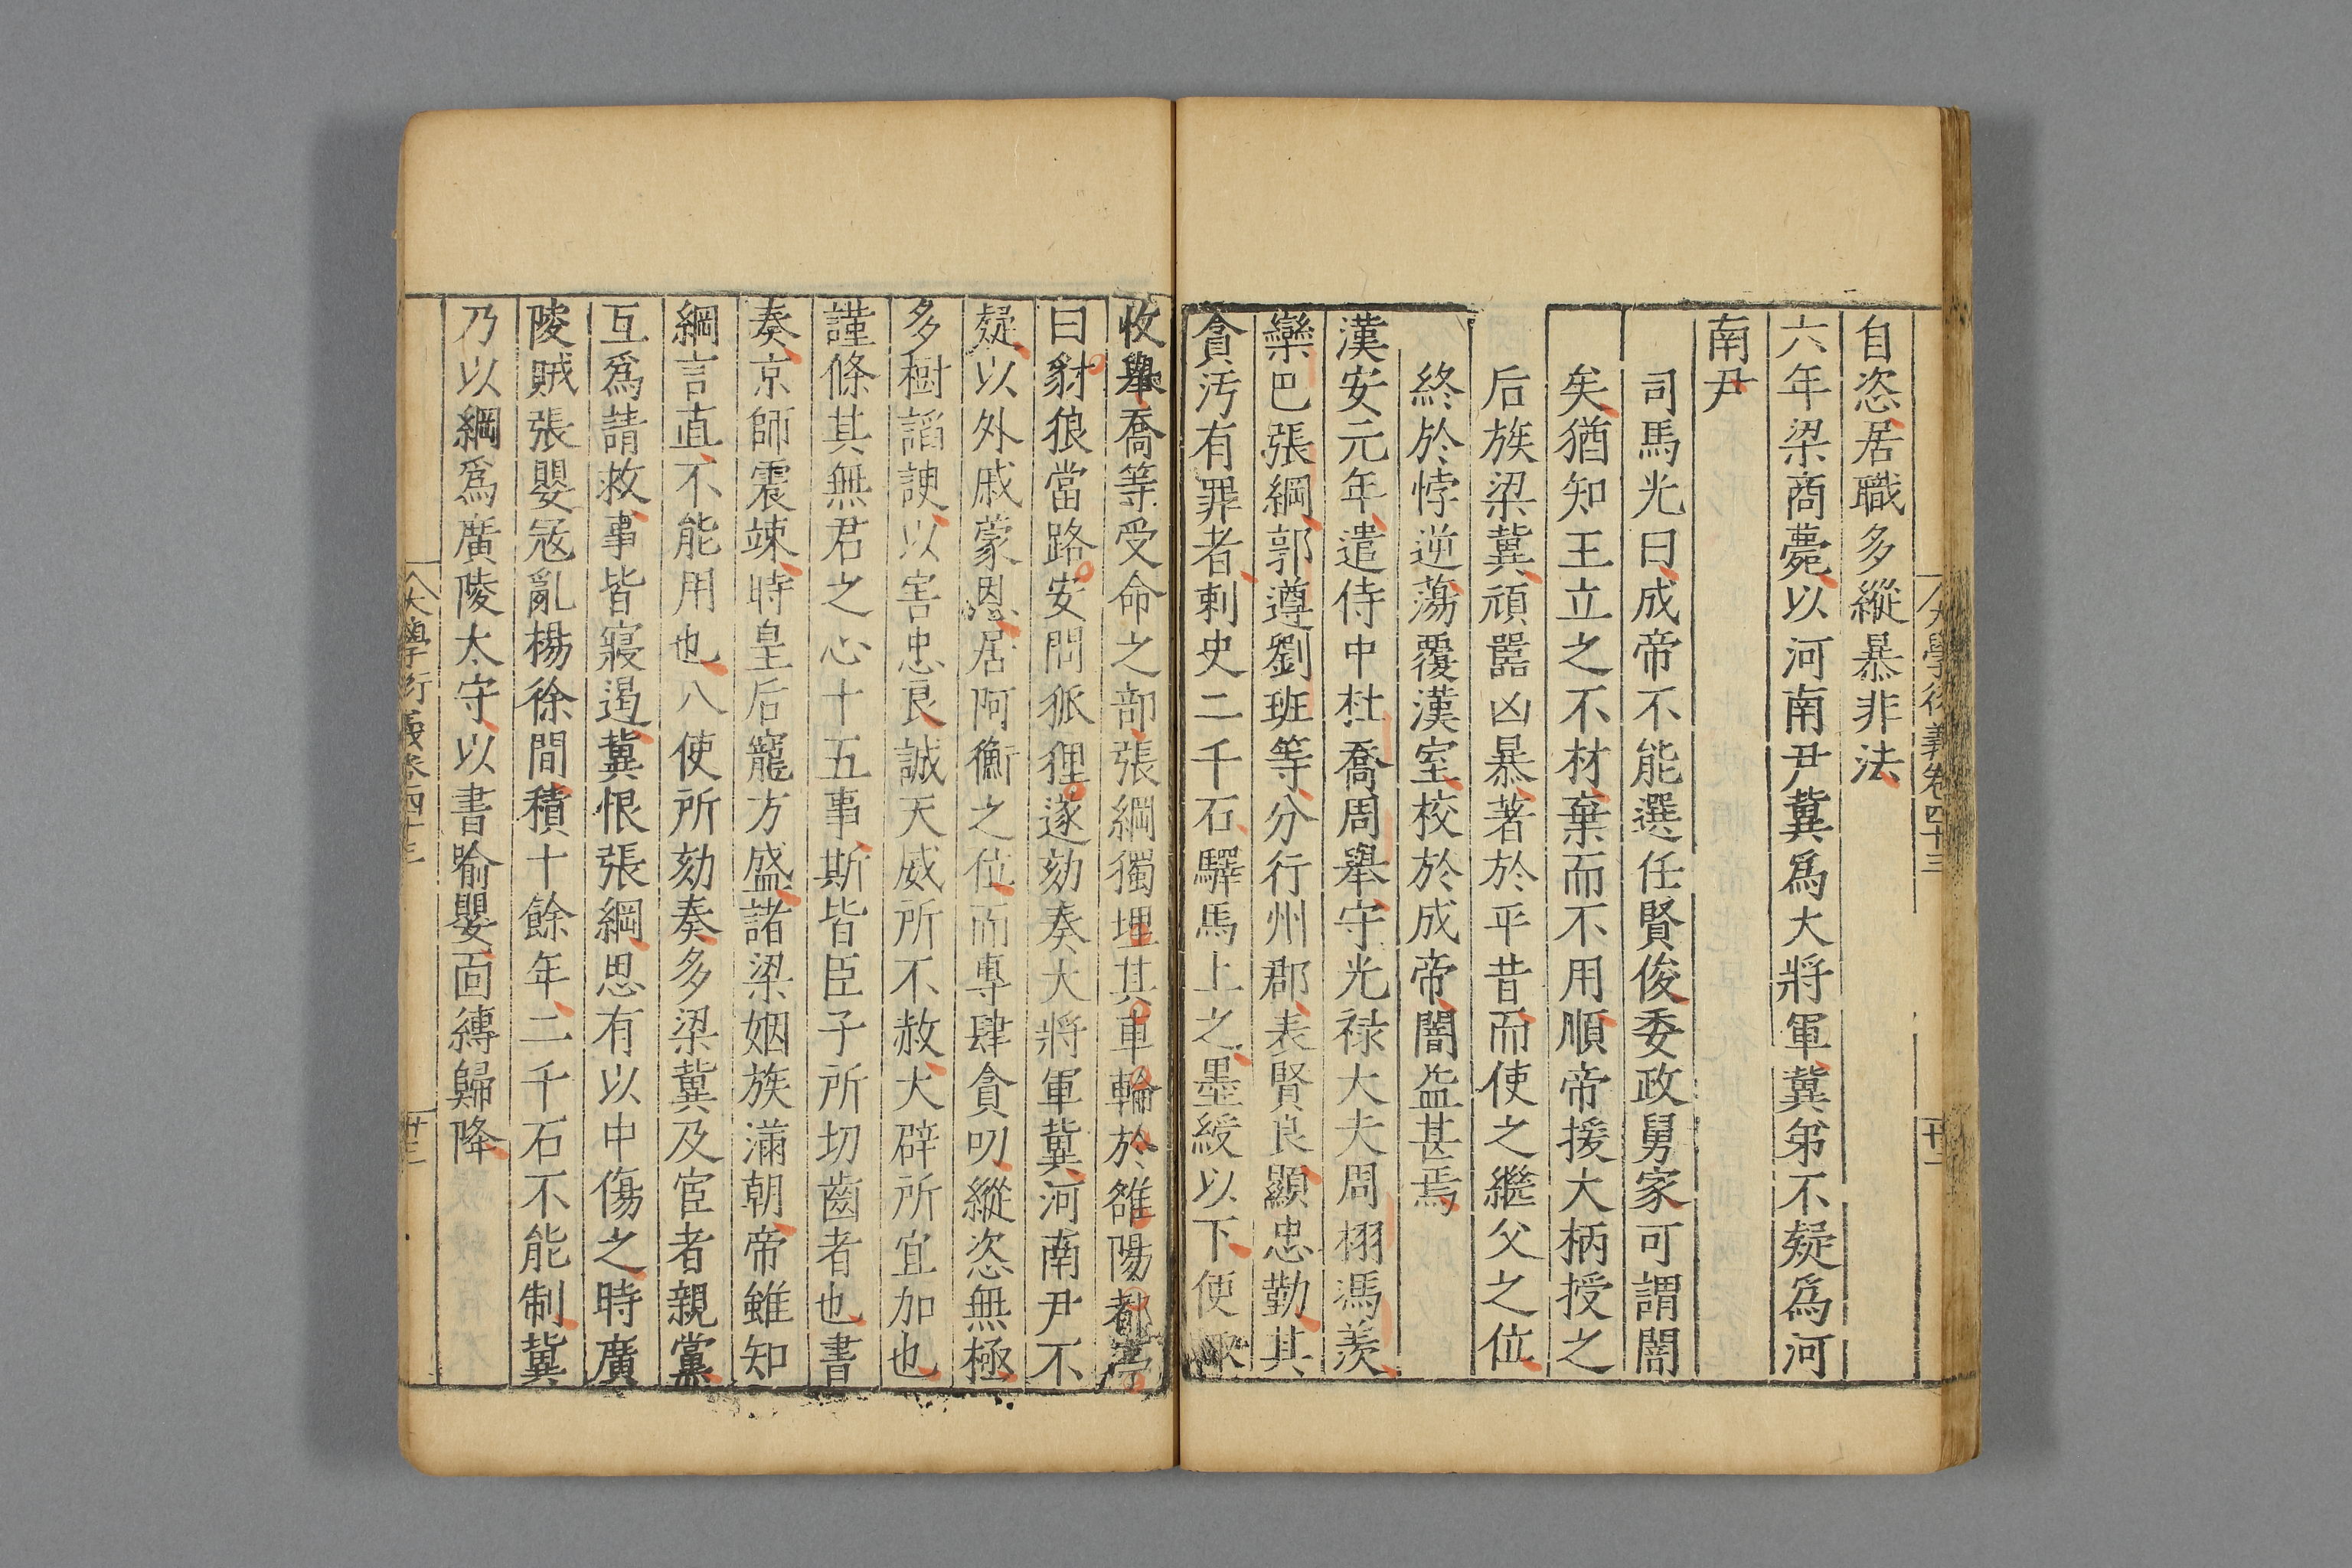 自恣居職多縱暴非法
六年梁商薨以河南尹冀爲大將軍冀弟不疑爲河
南尹
司馬光曰成帝不能選任賢俊委政舅家可謂闇
矣猶知王立之不材棄而不用順帝援大柄授之
后族梁冀頑嚚凶暴著於平昔而使之繼父之位
終於悖逆蕩覆漢室校於成帝闇益甚焉
漢安元年遣侍中杜喬周舉守光祿大夫周栩馮羨
欒巴張綱郭遵劉班等分行州郡表賢良顯忠勤其
貪汚有罪者刺史二千石驛馬上之墨綬以下便
收舉喬等受命之部張綱獨埋其車輪於雒陽都亭
曰豺狼當路安問狐狸遂劾奏大將軍冀河南尹不
疑以外戚蒙恩居阿衡之位而專肆貪叨縱恣無極
多樹諂諛以害忠良誠天威所不赦大辟所宜加也
謹條其無君之心十五事斯皆臣子所切齒者也書
奏京師震竦時皇后寵方盛諸梁姻族滿朝帝雖知
綱言直不能用也八使所劾奏多梁冀及宦者親黨
互爲請救事皆寢遏冀恨張綱思有以中傷之時廣
陵賊張嬰寇亂楊徐間積十餘年二千石不能制冀
乃以綱爲廣陵太守以書喻嬰面縛歸降
大學衍義卷四十三